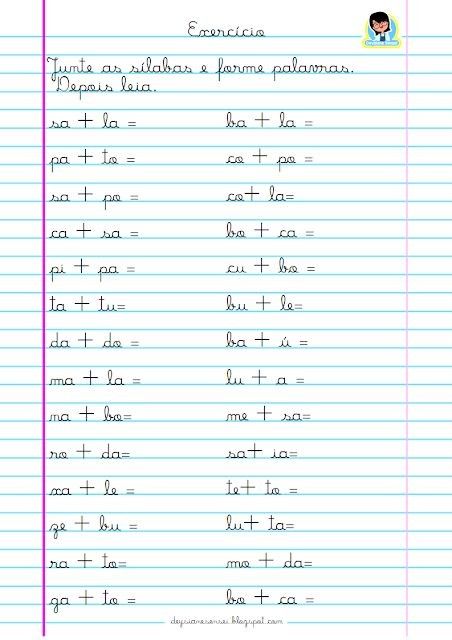 Exercício
Junte as sílabas e forme palavras.
Depois leia.
sa + la = ba + la =
pa + to = co + po =
sa + po = co+ la=
ca + sa = bo + ca =
pi + pa = cu + bo =
ta + tu= bu + le=
da + do = ba + ú =
ma + la = lu + a =
na + bo= me + sa=
ro + da= sa+ ia=
xa + le = te+ to =
ze + bu = lu+ ta=
ra + to= mo + da=
ga + to = bo + ca =
deysianesensei.blogspot.com